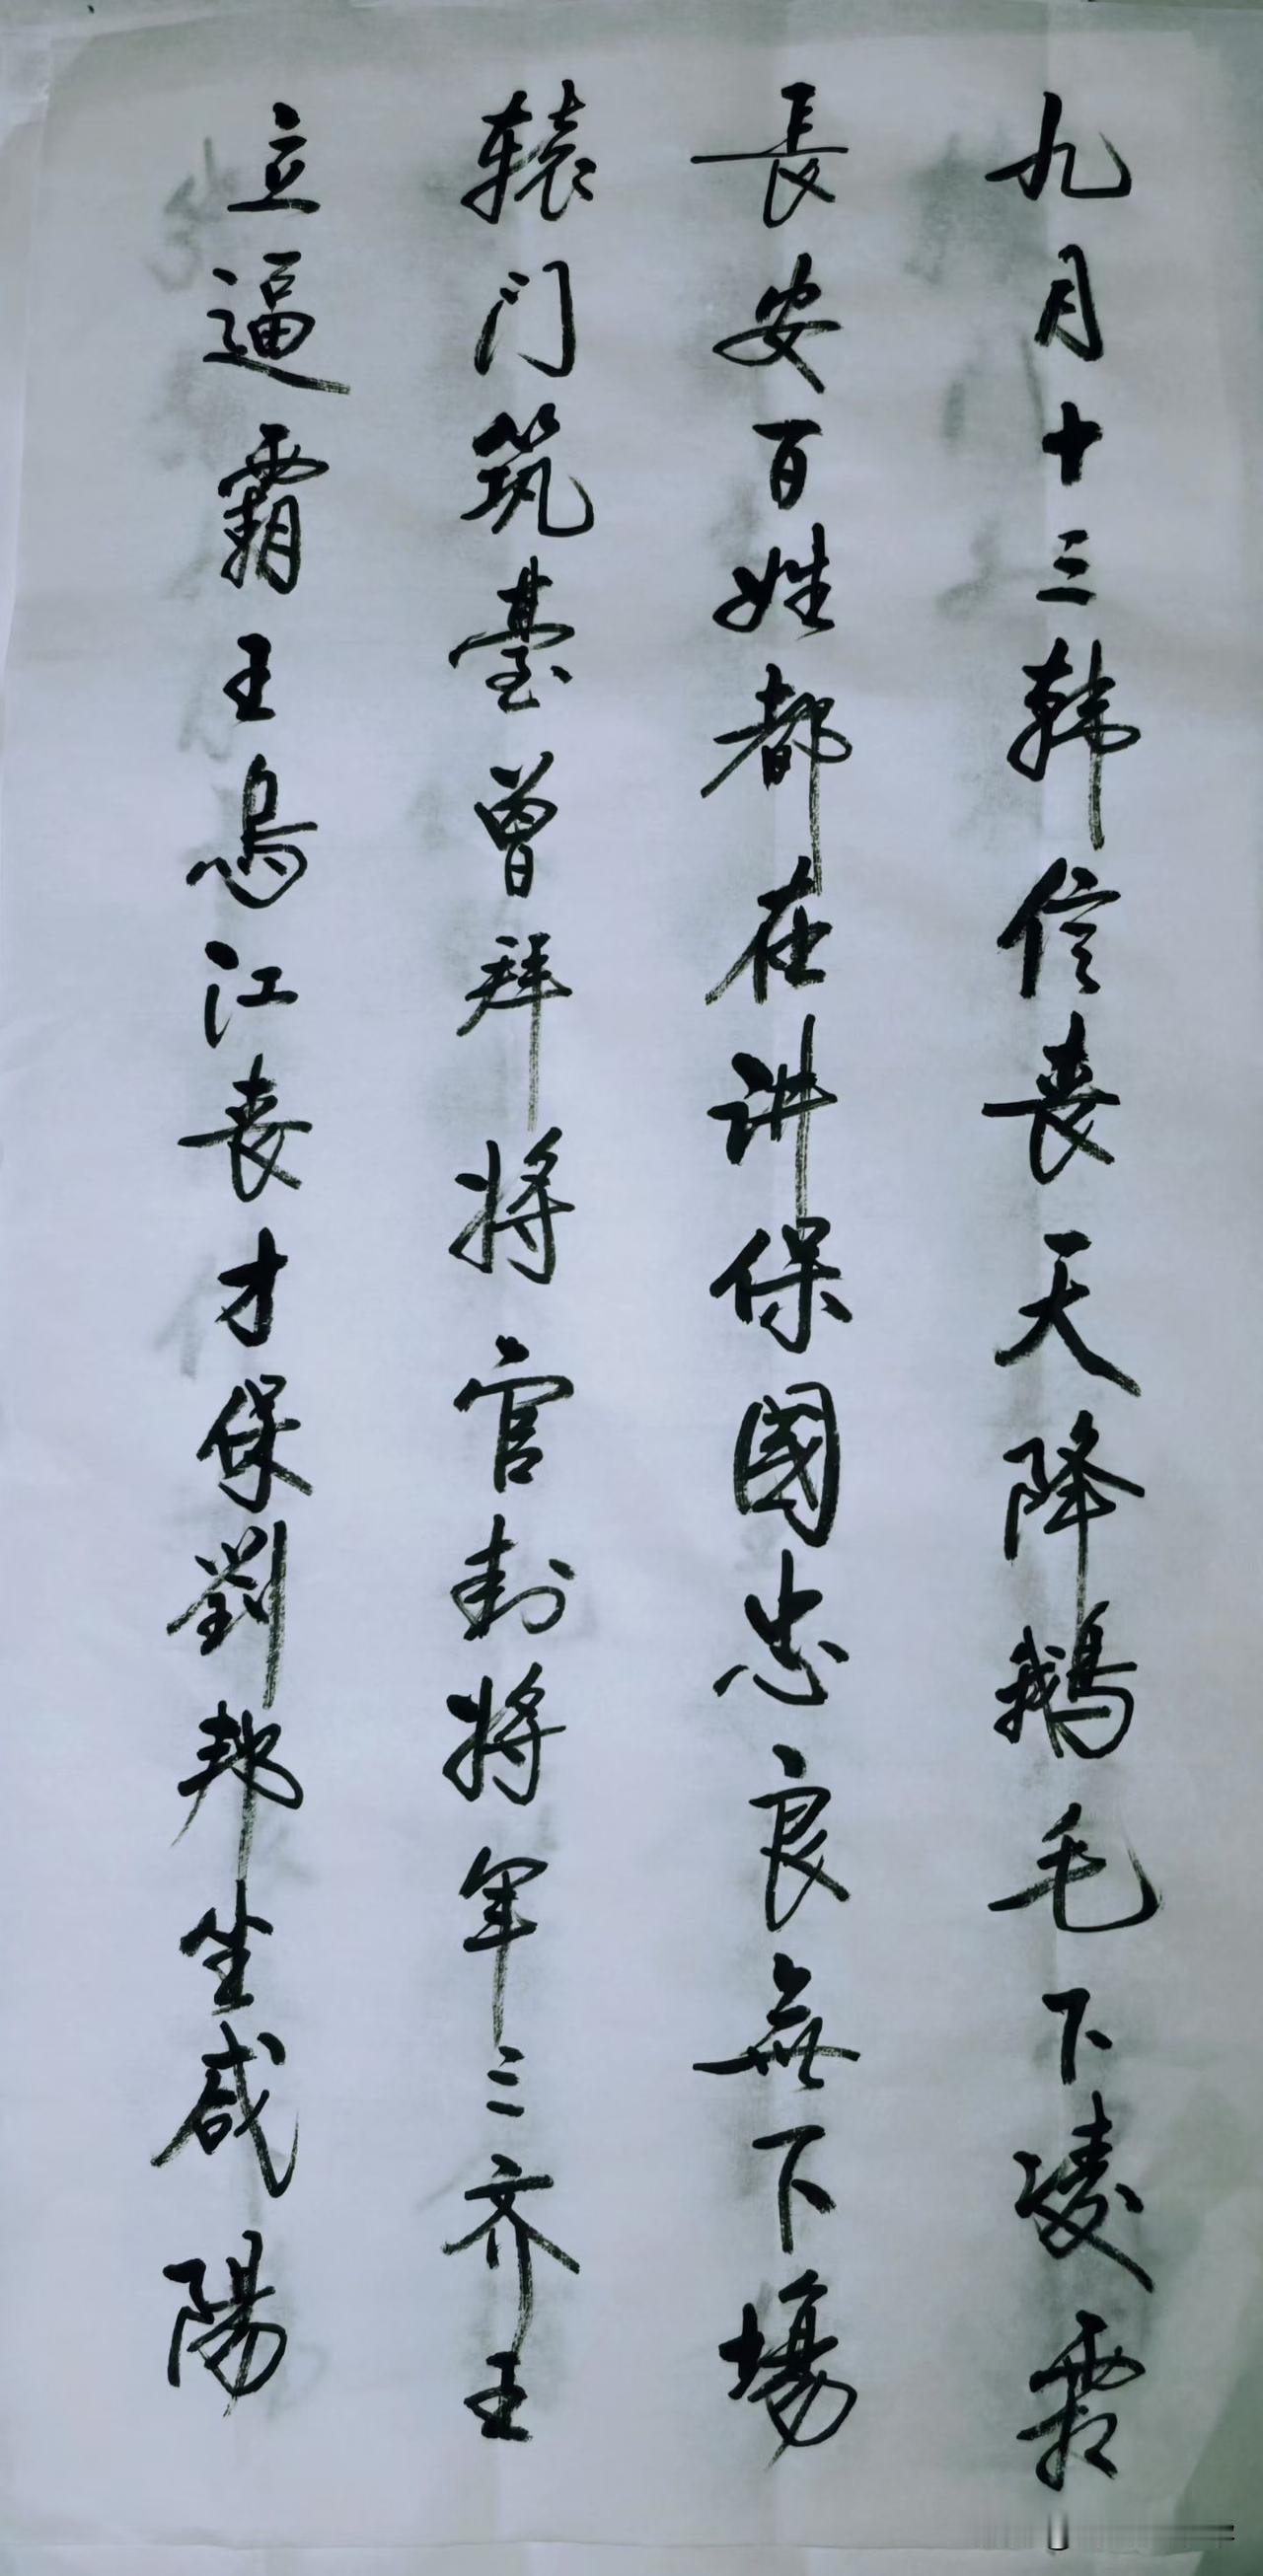 九月十三韩信丧天降鹅毛下凌霜
長安百姓都在讲保國忠良無下場
辕门筑臺曾拜将官封将军三齐王
立逼霸王烏江丧才保劉邦坐咸陽